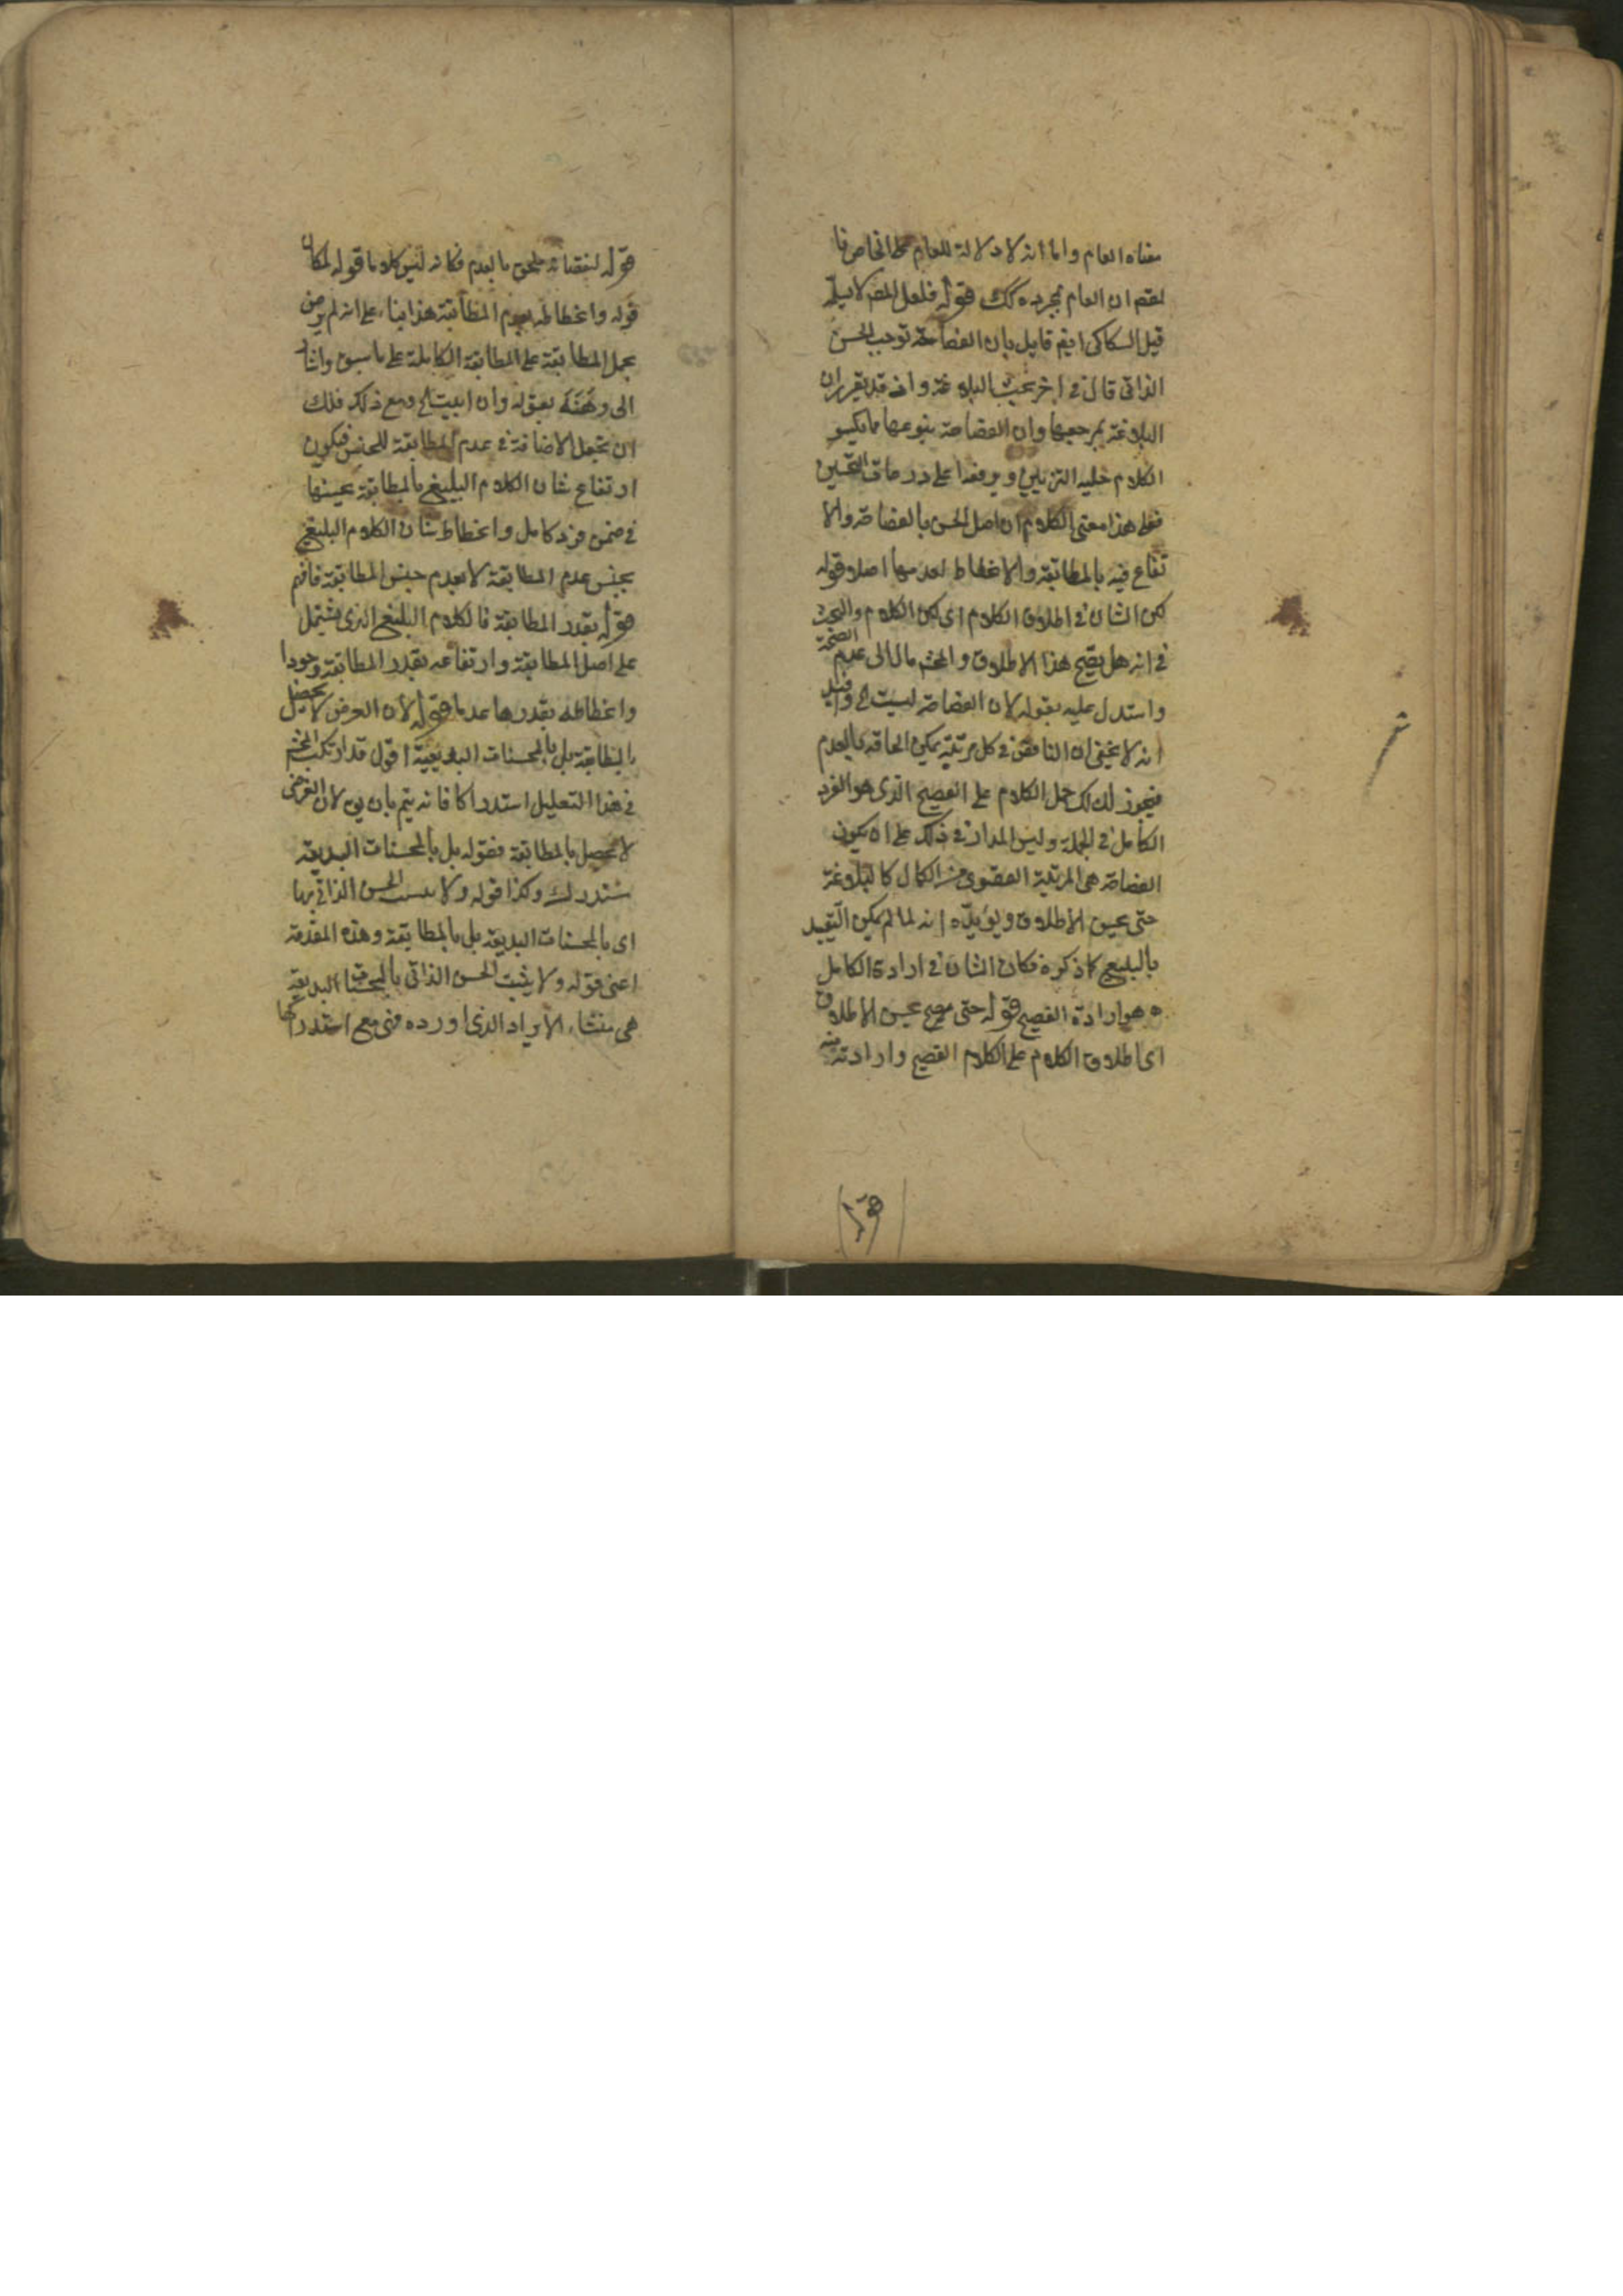 معناه العام واما انه لا دلالة للعام على الخاص فا
لعم ان العام بمجرده كك قوله فلعل المص لا يسلم
قيل السكاكى ايضا قايل بان الفصاحة توجب الحسن
الذاتى قال فى اخر بحث البلاغة واذ قد تقرر ان
البلاغة بمرجعيها وان الفصاحة بنوعيها مما يكسو
الكلام حلية التزيين ويرفعه اعلى درجات التحسين
فعلى هذا معنى الكلام ان اصل الحسن بالفصاحة والا
تفاع فيه بالمطابقة والانحطاط لعدمها اصلا قوله
لكن الشان فى اطلاق الكلام اى لكن الكلام والبحث
فى انه هل يصح هذا الاطلاق والمحشى مال الى عدم الصحة
واستدل عليه بقوله لان الفصاحة ليست الخ وفيه
انه لا يخفى ان الناقص فى كل مرتبة يمكن الحاقه بالعدم
فيجوز لذلك حمل الكلام على الفصيح الذى هو الفرد
الكامل فى الجملة وليس المدار فى ذلك على ان يكون
الفصاحة هى المرتبة القصوى من الكمال كالبلاغة
حتى يحسن الاطلاق ويؤيده انه لما لم يكن التقييد
بالبليغ كما ذكره فكان الشان فى ارادة الكامل
هو ارادة الفصيح قوله حتى يصح يحسن الاطلاق
اى اطلاق الكلام على الكلام الفصيح وارادته منه
قوله لنقصانه ملحق بالعدم فكانه ليس كلاما قوله لمكان
قوله وانحطاطه بعدم المطابقة هذا بناء على انه لم يرض
بحمل المطابقة على المطابقة الكاملة على ما سبق واشار
الى وهنه بقوله وان ابيت الخ ومع ذلك فلك
ان تجعل الاضافة فى عدم المطابقة للجنس فيكون
ارتفاع شان الكلام البليغ بالمطابقة بجنسها
فى ضمن فرد كامل وانحطاط شان الكلام البليغ
بجنس عدم المطابقة لا بعدم جنس المطابقة فافهم
قوله بقدر المطابقة فالكلام البليغ الذى يشتمل
على اصل المطابقة وارتفاعه بقدر المطابقة وجودا
وانحطاطه بقدرها عدما قوله لان الغرض لا يحصل
بالمطابقة بل بالمحسنات البديعية اقول قد ارتكب المحشى
فى هذا التعليل استدراكا فانه يتم بان يق لان الغرض
لا يحصل بالمطابقة فقوله بل بالمحسنات البديعية
مستدرك وكذا قوله ولا يثبت الحسن الذاتى بها
اى بالمحسنات البديعية بل بالمطابقة وهذه المقدمة
اعنى قوله ولا يثبت الحسن الذاتى بالمحسنات البديعية
هى منشاء الايراد الذى اورده فهى مع استدراكها